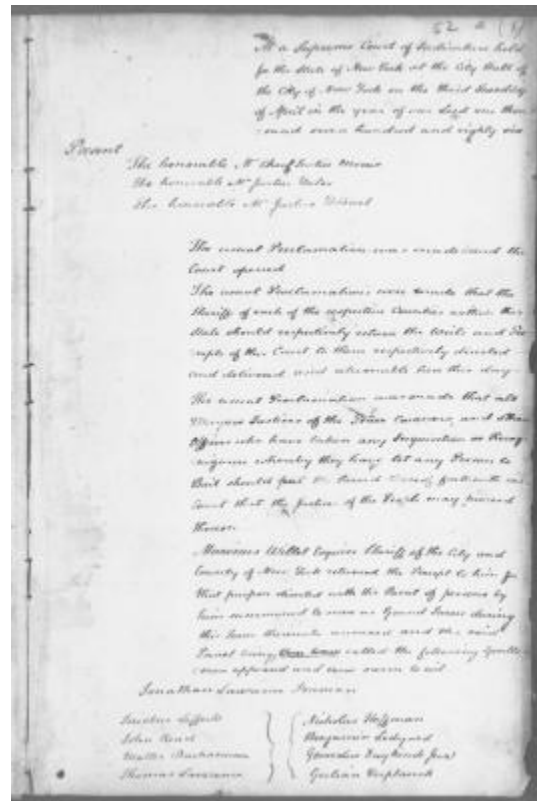 52 a (1)
At a Supreme Court of Judicature held
for the State of New York at the City Hall of
the City of New York on the third Tuesday
of April in the year of our Lord one thou
sand seven hundred and eighty six
Present
The honorable Mr Chief Justice Morris
The honorable Mr Justice Yates
The honorable Mr Justice Hobart
The usual Proclamation was made and the
Court opened
The usual Proclamations were made that the
Sheriff of each of the respective Counties within this
State should respectively return the Writs and Pre
cepts of this Court to them respectively directed
and delivered and returnable here this day
The usual Proclamation was made that all
Mayors Justices of the Peace Coroners and other
Officers who have taken any Inquisition or Recog
nizance whereby they have let any Person to
Bail should put the Record
Court that the Justices of the People may proceed
thereon
Marinus Willet Esquire Sheriff of the City and
County of New York returned the Precept to him for
that purpose directed with the Panel of persons by
him summoned to serve as Grand Jurors during
this Term thereunto annexed and the said
Panel being called the following Gentle
men appeared and were sworn to wit
Jonathan Lawrence Foreman
Jacobus Lefferts
John Reed
Walter Buchannan
Thomas Lawrence
Nicholas Hoffman
Benjamin Ledyard
Gerardus Duyckinck Junr
Gulian Verplanck